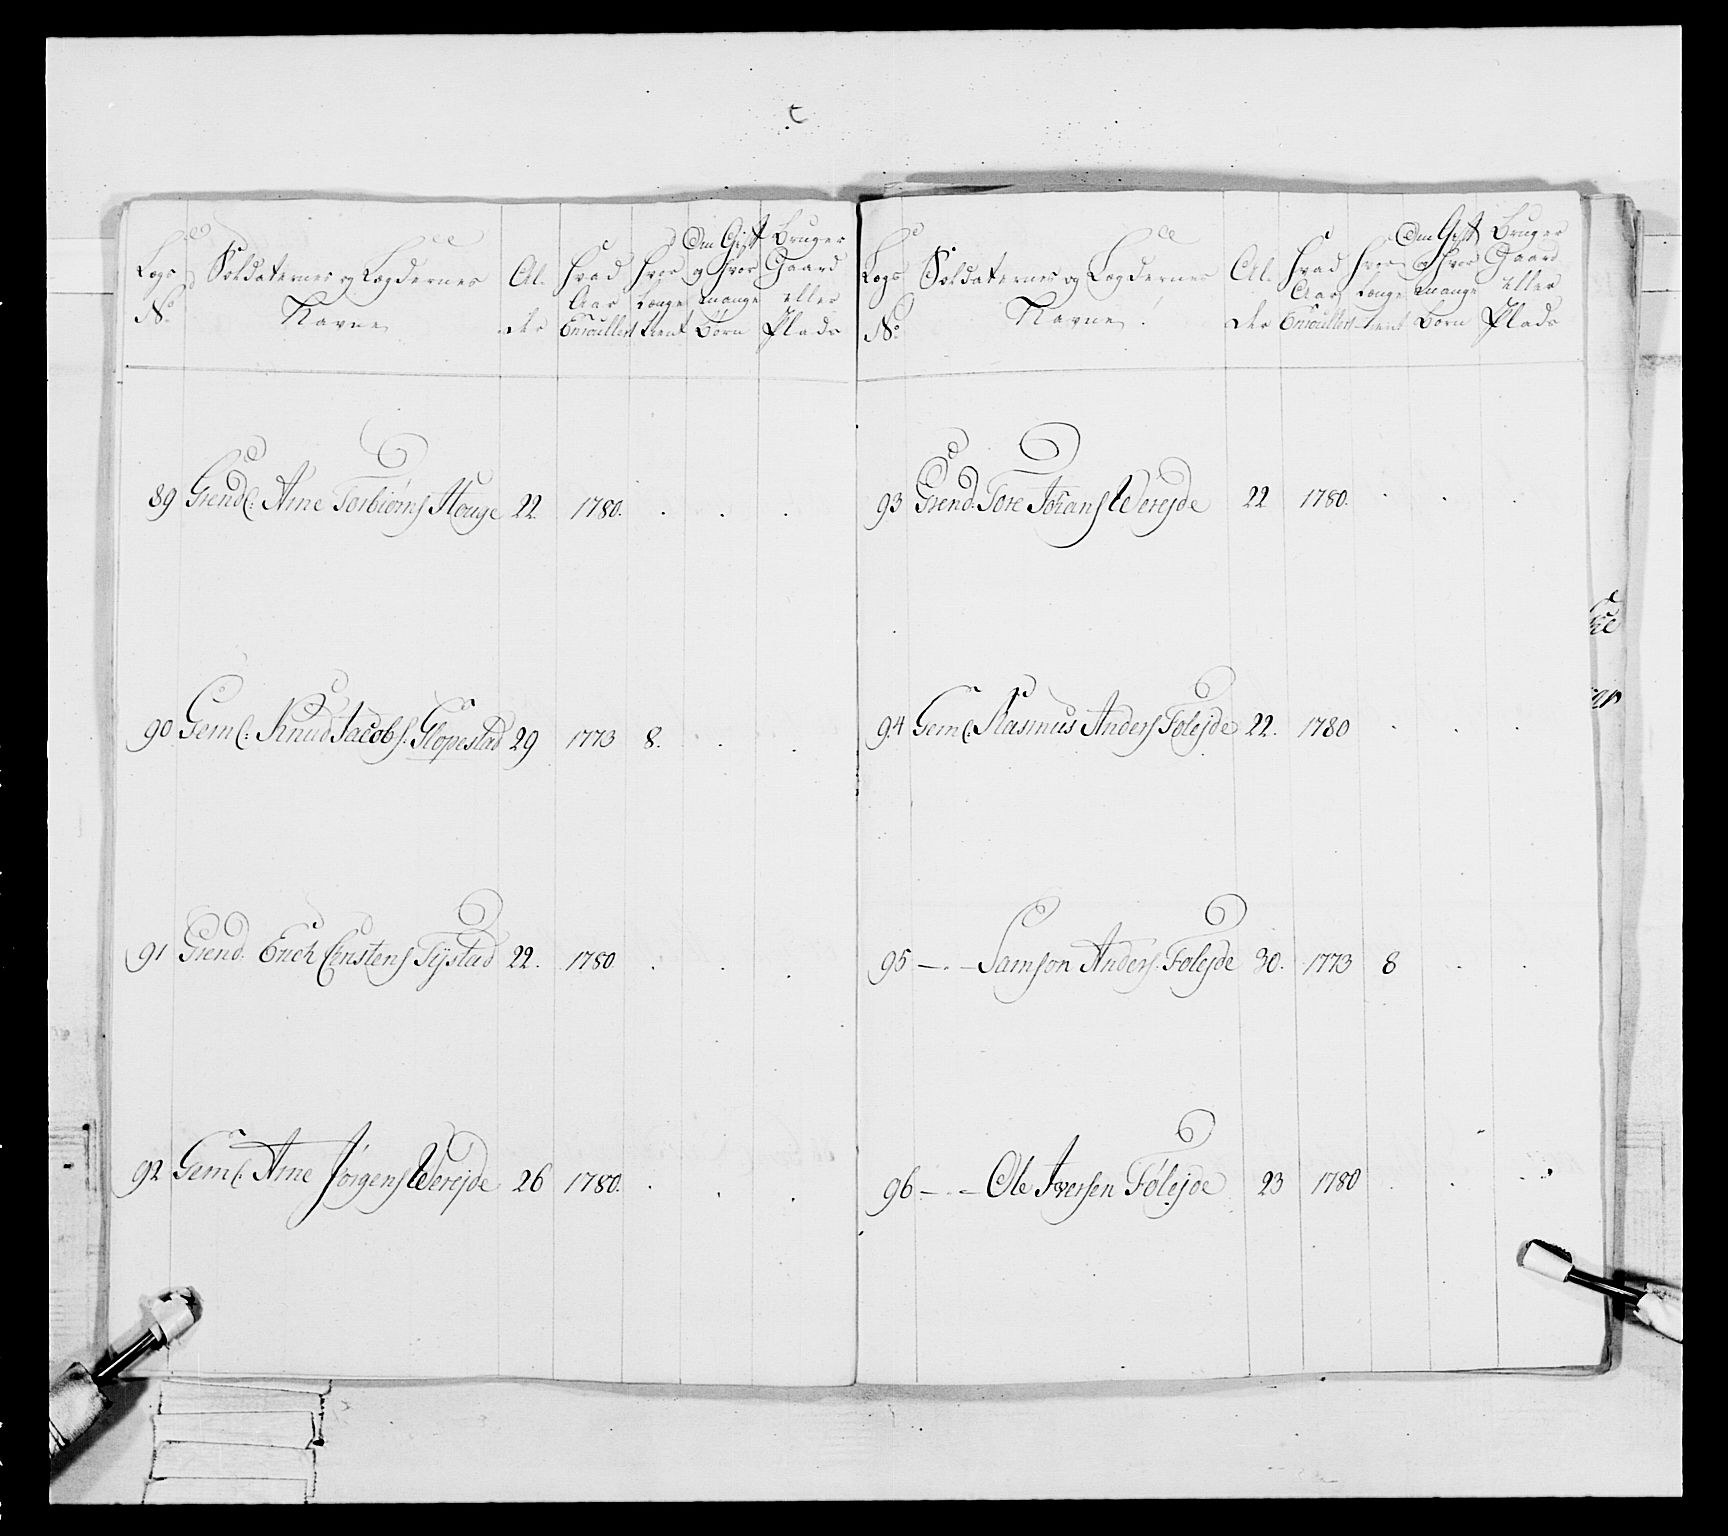 Logs No. Soldaternes og Lægdernes Navne Al- der hvad Aar Enroullert hvor Længe tient Om Gift og hvor mange Børn Bruger Gaard eller Plads
89 Grendl: Arne Torbiørns Houge 22. 1780. . . .
90 Geml: Knud Jacobs. Glopestad 29 1773 8. . .
91 Grend: Erich Censtens Tÿstad 22. 1780 . . .
92 Geml: Arne Jørgens Werejde 26 1780. . . .
Logs No. Soldaternes og Lægdernes Navne. Al- der hvad Aar Enroullert hvor Længe tient Om Gift og hvor mange Børn Bruger Gaard eller Plads
93 Grend: Tore Johans Werejde 22 1780. . . .
94 Geml: Rasmus Anders Folejde 22. 1780 . . .
95 —.— Samson Anders. Folejde 30. 1773 8 . .
96 —.— Ole Iversen Følejde 23 1780 . . .